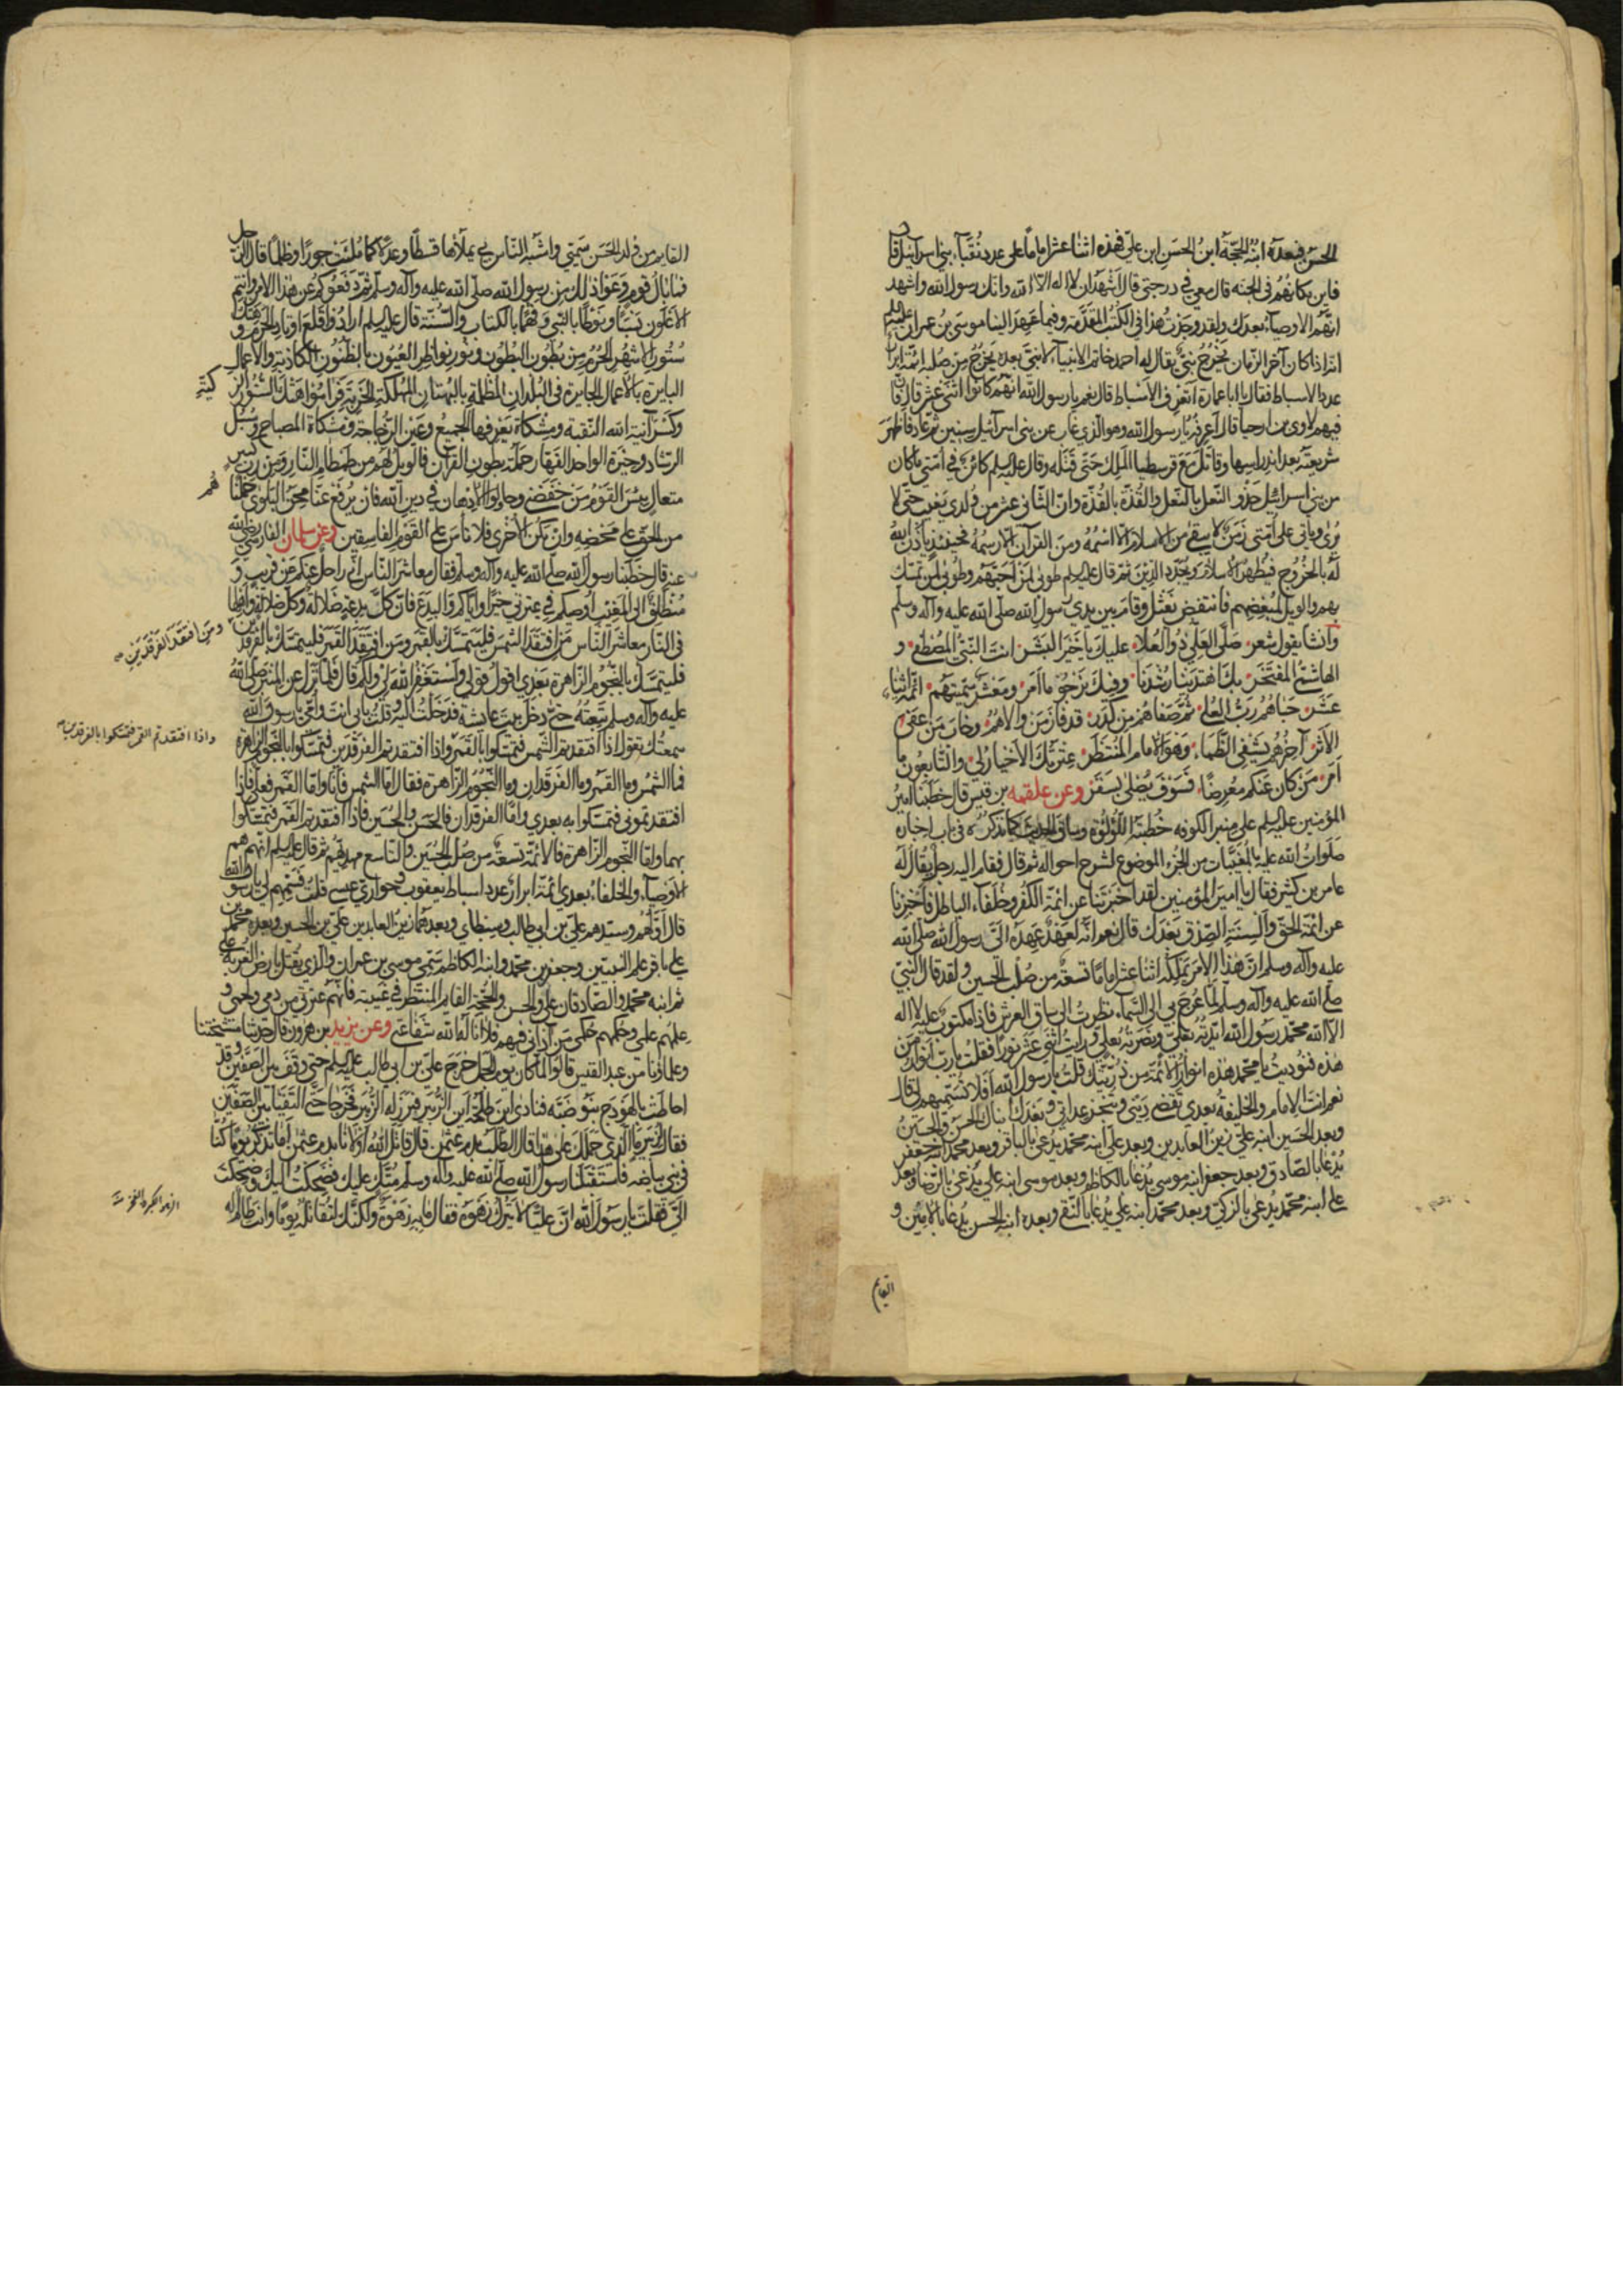 الحسن فبعده ابنه الحجة ابن الحسن ابن علي فهذه اثنا عشر اماما على عدد نقباء بني اسرآئيل قا
فاين مكانهم في الجنه قال معي في درجتي قال اشهد ان لا اله الا الله وانك رسول الله واشهد
انهم الاوصياء بعدك ولقد وجدت هذا في الكتب المتقدمة وفيما عهد الينا موسى بن عمران عليه السلم
انه اذا كان آخر الزمان يخرج نبي يقال له احمد خاتم الانبياء لا نبي بعده يخرج من صلبه ائمة ابرار
عدد الاسباط فقال يا ابا عمارة اتعرف الاسباط قال نعم يا رسول الله انهم كانوا اثني عشر قال فان
فيهم لاوى بن ارحيا قال اعرفه يا رسول الله وهو الذي غاب عن بني اسرآئيل سنين ثم عاد فاظهر
شريعته بعد اندراسها وقاتل مع قرسطيا الملك حتى قتله وقال عليه السلم كائن في امتي ما كان
من بني اسرائيل حذو النعل بالنعل والقذة بالقذة وان الثاني عشر من ولدي يغيب حتى لا
يرى وياتي على امتي زمن لا يبقى من الاسلام الا اسمه ومن القرآن الا رسمه فحينئذ ياذن الله
له بالخروج فيظهر الاسلام ويجدد الدين ثم قال عليه السلم طوبى لمن احبهم وطوبى لمن تمسك
بهم والويل لمبغضهم فانتفض نعثل وقام بين يدي رسول الله صلى الله عليه وآله وسلم
وانشا يقول شعر صلى العلي ذو العلا عليك يا خير البشر انت النبي المصطفى و
الهاشمي المفتخر بك اهتدينا رشدنا وفيك نرجو ما امر ومعشر سميتهم ائمة اثنا
عشر حباهم رب العلى ثم صفاهم من كدر قد فاز من والاهم وخاب من عفى
الاثر آخرهم يشفي الظما وهو الامام المنتظر عترتك الاخيار لي والتابعون ما
امر من كان عنكم معرضا فسوف يصلى بسقر وعن علقمه بن قيس قال خطبنا امير
المؤمنين عليه السلم على منبر الكوفه خطبة اللؤلؤة وساق الحديث كما تذكره في باب اخباره
صلوات الله عليه بالمغيبات من الجزء الموضوع لشرح احواله ثم قال فقام اليه رجل يقال له
عامر بن كثير فقال يا امير المؤمنين لقد اخبرتنا عن ائمة الكفر وخلفاء الباطل فاخبرنا
عن ائمة الحق والسنة الصدق بعدك قال نعم انه لعهد عهده الي رسول الله صلى الله
عليه وآله وسلم ان هذا الامر يملكه اثنا عشر اماما تسعة من صلب الحسين ولقد قال النبي
صلى الله عليه وآله وسلم لما عرج بي الى السماء نظرت الى ساق العرش فاذا مكتوب عليه لا اله
الا الله محمد رسول الله ايدته بعلي ونصرته بعلي ورايت اثني عشر نورا فقلت يا رب انوار من
هذه فنوديت يا محمد هذه انوار الائمة من ذريتك قلت يا رسول الله افلا تسميهم لي قال
نعم انت الامام والخليفة بعدي تقضي ديني وتنجز عداتي وبعدك ابناك الحسن والحسين
وبعد الحسين ابنه علي زين العابدين وبعد علي ابنه محمد يدعى بالباقر وبعد محمد ابنه جعفر
يدعى بالصادق وبعد جعفر ابنه موسى يدعى بالكاظم وبعد موسى ابنه علي يدعى بالرضا وبعد
علي ابنه محمد يدعى بالزكي وبعد محمد ابنه علي يدعى بالنقي وبعده ابنه الحسن يدعى بالامين و
القايم
القايم من ولد الحسن سميي واشبه الناس بي يملاها قسطا وعدلا كما ملئت جورا وظلما قال الرجل
فما بال قوم وعوا ذلك من رسول الله صلى الله عليه وآله وسلم ثم دفعوكم عن هذا الامر وانتم
الاعلون نسبا ونوطا بالنبي وفهما بالكتاب والسنة قال عليه السلم ارادوا قلع اوتاد الحرم وهتك
ستور الاشهر الحرم من بطون البطون ونور نواظر العيون بالظنون الكاذبة والاعمال
البايرة بالاعمال الجايرة في البلدان المظلمة بالبهتان المهلكة الخربة فراموا هتك الستور الز
كية
وكسر آنية الله النقية ومشكاة يعرفها الجميع وعين الزجاجة ومشكاة المصباح وسبل
الرشاد وخيرة الواحد القهار حملة بطون القرآن فالويل لهم من طمطام النار ومن رب كبير
متعال بئس القوم من خفضني وحاولوا الادهان في دين الله فان يرفع عنا محن البلوى حملنا
هم
من الحق على محضه وان يكن الاخرى فلا تاس على القوم الفاسقين وعن سلمان الفارسي رضي الله
عنه قال خطبنا رسول الله صلى الله عليه وآله وسلم فقال معاشر الناس اني راحل عنكم عن قريب و
منطلق الى المغيب اوصيكم في عترتي خيرا واياكم والبدع فان كل بدعة ضلالة وكل ضلالة واهلها
في النار معاشر الناس من افتقد الشمس فليتمسك بالقمر ومن افتقد القمر فليتمسك بالفرقدين
ومن افتقد الفرقدين
فليتمسك بالنجوم الزاهرة بعدي اقول قولي واستغفر الله لي ولكم قال فلما نزل عن المنبر صلى الله
عليه وآله وسلم تبعته حتى دخل بيت عايشة فدخلت اليه وقلت بابي انت وامي يا رسول الله
سمعتك تقول اذا افتقدتم الشمس فتمسكوا بالقمر واذا افتقدتم الفرقدين فتمسكوا بالنجوم الزاهرة
واذا افتقدتم القمر فتمسكوا بالفرقدين
فما الشمس وما القمر وما الفرقدان وما النجوم الزاهرة فقال اما الشمس فانا واما القمر فعلي فاذا
افتقدتموني فتمسكوا به بعدي واما الفرقدان فالحسن والحسين فاذا افتقدتم القمر فتمسكوا
بهما واما النجوم الزاهرة فالائمة تسعة من صلب الحسين والتاسع مهديهم ثم قال عليه السلم انهم هم
الاوصياء والخلفاء بعدي ائمة ابرار عدد اسباط يعقوب وحواري عيسى قلت فسمهم لي يا رسول الله
قال اولهم وسيدهم علي بن ابي طالب وسبطاي وبعدهما زين العابدين علي بن الحسين وبعده محمد بن
علي باقر علم النبيين وجعفر بن محمد وابنه الكاظم سمي موسى بن عمران والذي يقتل بارض الغربة علي
ثم ابنه محمد والصادقان علي والحسن والحجة القايم المنتظر في غيبته فانهم عترتي من دمي ولحمي و
علمهم علمي وحكمهم حكمي من آذاني فيهم فلا اناله الله شفاعتي وعن يزيد بن هرون قال حدثنا مشيختنا
وعلماؤنا من عبد القيس قالوا لما كان يوم الجمل خرج علي بن ابي طالب عليه السلم حتى وقف بين الصفين وقد
احاطت بالهودج بنو ضبه فنادى اين طلحة اين الزبير فبرز له الزبير فخرجا حتى التقيا بين الصفين
فقال يا زبير ما الذي حملك على هذا قال الطلب بدم عثمن قال قاتل الله اولانا بدم عثمن اما تذكر يوما كنا
في بني بياضه فاستقبلنا رسول الله صلى الله عليه وآله وسلم متك عليك فضحكت اليك وضحكت
الي فقلت يا رسول الله ان عليا لا يترك زهوه فقال ما به زهوة ولكنك لتقاتله يوما وانت ظالم له
الزهو الكبر والفخر منه